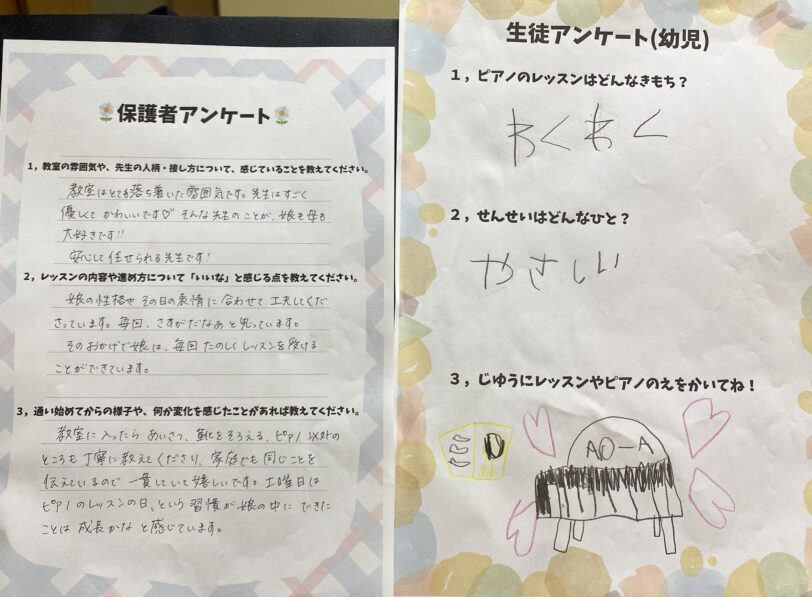 保護者アンケート
1，教室の雰囲気や、先生の人柄・接し方について、感じていることを教えてください。
教室はとても落ち着いた雰囲気です。先生はすごく
優しくて かわいいです♡ そんな先生のことが、娘も母も
大好きです!!
安心して任せられる先生です!
2，レッスンの内容や進め方について「いいな」と感じる点を教えてください。
娘の性格や その日の表情に合わせて 工夫してくだ
さっています。毎回、さすがだなあと思っています。
そのおかげで娘は、毎回 たのしくレッスンを受ける
ことができています。
3，通い始めてからの様子や、何か変化を感じたことがあれば教えてください。
教室に入ったら あいさつ、靴をそろえる、ピアノ以外の
ところも丁寧に教えてくださり、家庭でも同じことを
伝えているので 一貫していて嬉しいです。土曜日は
ピアノのレッスンの日、という習慣が娘の中に できた
ことは 成長かな と感じています。
生徒アンケート(幼児)
1，ピアノのレッスンはどんなきもち？
わくわく
2，せんせいはどんなひと？
やさしい
3，じゆうにレッスンやピアノのえをかいてね！
AO-A